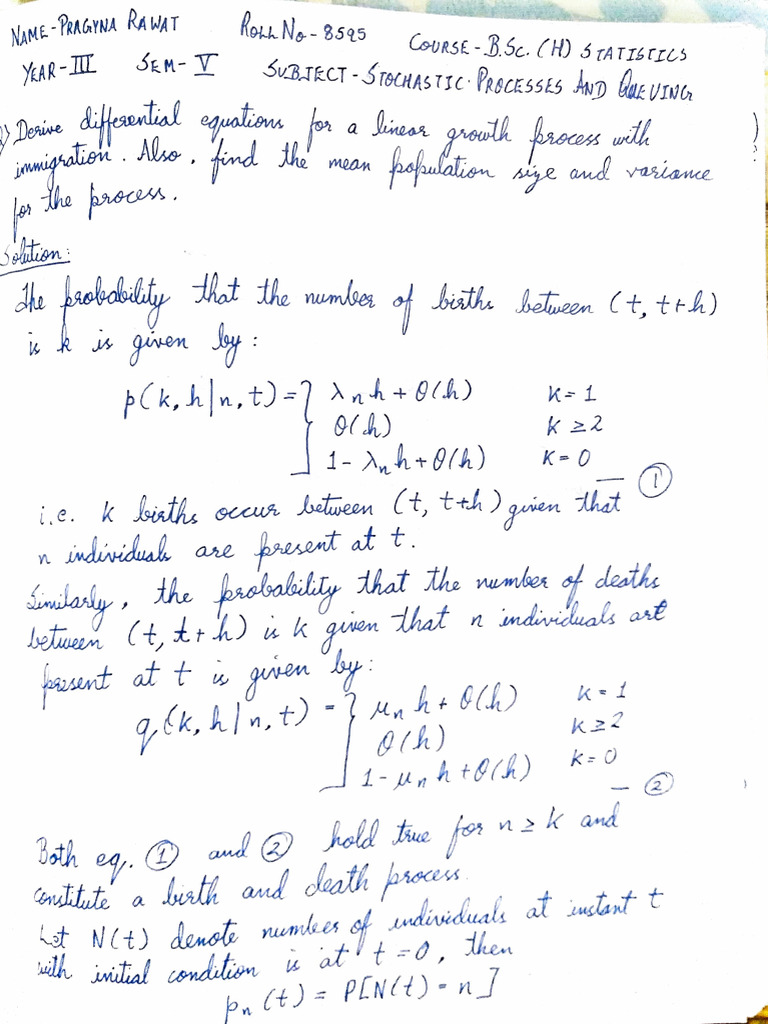 NAME-PRAGYNA RAWAT ROLL NO-8595 COURSE-B.SC.(H) STATISTICS
YEAR-III SEM-V SUBJECT-STOCHASTIC PROCESSES AND QUEUING
Derive differential equations for a linear growth process with
immigration. Also, find the mean population size and variance
for the process.
Solution:
The probability that the number of births between (t, t+h)
is k is given by:
p(k, h|n, t) = { λₙh + O(h) K=1
O(h) K≥2
1-λₙh+O(h) K=0
— ①
i.e. k births occur between (t, t+h) given that
n individuals are present at t.
Similarly, the probability that the number of deaths
between (t, t+h) is k given that n individuals are
present at t is given by:
q(k, h|n, t) = { μₙh + O(h) K=1
O(h) K≥2
1-μₙh+O(h) K=0
— ②
Both eq. ① and ② hold true for n≥k and
constitute a birth and death process.
Let N(t) denote number of individuals at instant t
with initial condition is at t=0, then
pₙ(t) = P[N(t)=n]